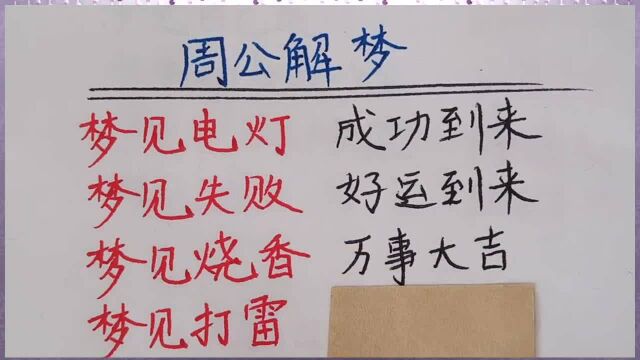 周公解梦
梦见电灯 成功到来
梦见失败 好运到来
梦见烧香 万事大吉
梦见打雷